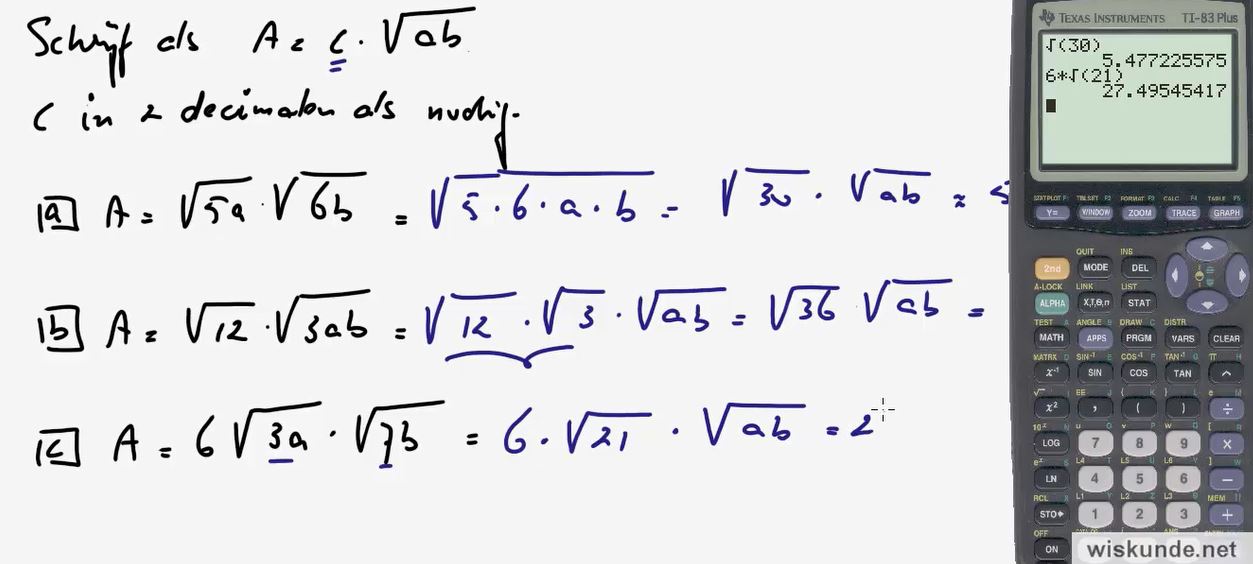 Schrijf als A = c · √ab
C in 2 decimalen als nodig.
a) A = √5a · √6b = √5·6·a·b = √30 · √ab ≈ 5
b) A = √12 · √3ab = √12 · √3 · √ab = √36 √ab =
c) A = 6√3a · √7b = 6 · √21 · √ab = 2
TEXAS INSTRUMENTS TI-83 Plus
√(30)
5.477225575
6*√(21)
27.49545417
STATPLOT F1 TBLSET F2 FORMAT F3 CALC F4 TABLE F5
Y= WINDOW ZOOM TRACE GRAPH
QUIT INS
2nd MODE DEL
A-LOCK LINK LIST
ALPHA X,T,Θ,n STAT
TEST A ANGLE B DRAW C DISTR
MATH APPS PRGM VARS CLEAR
MATRX D SIN⁻¹ E COS⁻¹ F TAN⁻¹ G π H
x⁻¹ SIN COS TAN ^
√ I EE J { K } L e M
x² , ( ) ÷
10ˣ N u O v P w Q [ R
LOG 7 8 9 ×
eˣ S L4 T L5 U L6 V ] W
LN 4 5 6 −
RCL X L1 Y L2 Z L3 θ MEM "
STO▸ 1 2 3 +
OFF
ON
wiskunde.net